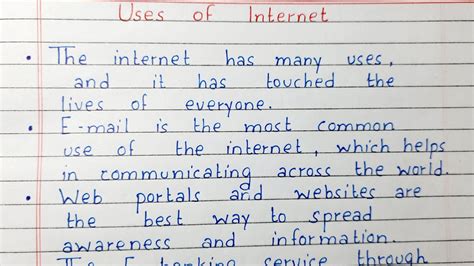 Uses of Internet
• The internet has many uses,
and it has touched the
lives of everyone.
• E-mail is the most common
use of the internet, which helps
in communicating across the world.
• Web portals and websites are
the best way to spread
awareness and information.
The E-banking service through